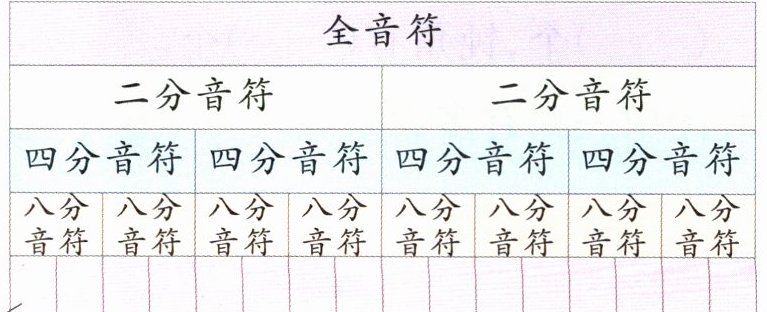 全音符
二分音符 二分音符
四分音符 四分音符 四分音符 四分音符
八分 八分 八分 八分 八分 八分 八分 八分
音符 音符 音符 音符 音符 音符 音符 音符